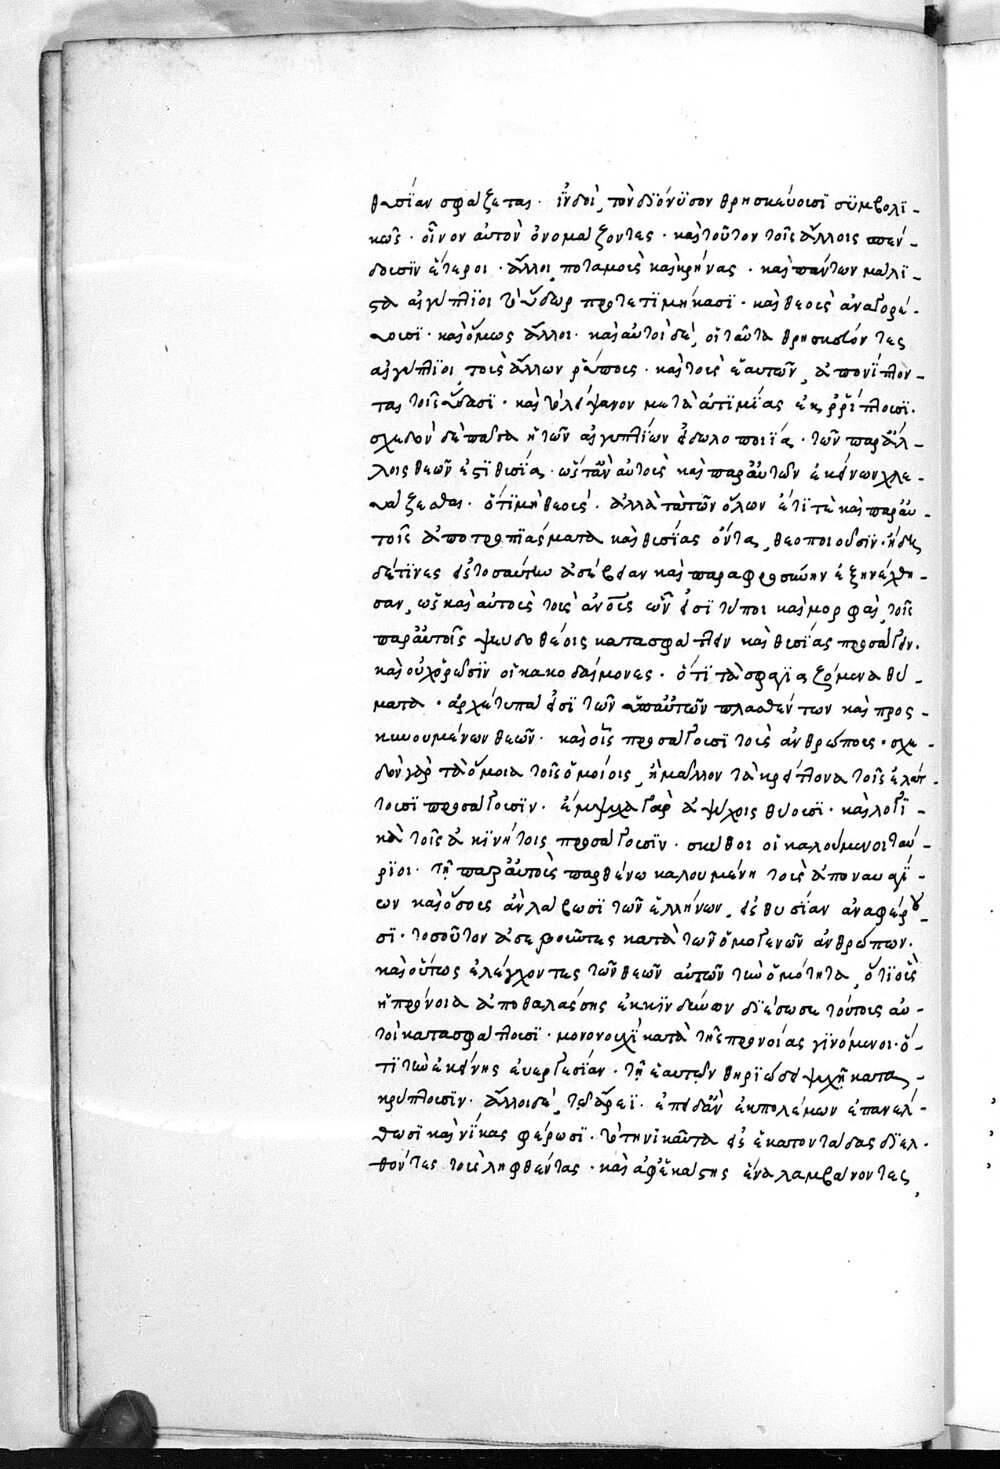 θυσίαν σφάζεται· ἰνδοὶ, τὸν διόνυσον θρησκεύουσι συμβολι-
κῶς· οἶνον αὐτὸν ὀνομάζοντες· καὶ τοῦτον τοῖς ἄλλοις σπέν-
δουσιν ἕτεροι· ἄλλοι, ποταμοὺς καὶ κρήνας· καὶ πάντων μάλι-
στα αἰγύπτιοι τὸ ὕδωρ προτετιμήκασι· καὶ θεοὺς ἀναγορεύ-
ουσι· καὶ ὅμως ἄλλοι· καὶ αὐτοὶ δὲ, οἱ ταῦτα θρησκεύοντες
αἰγύπτιοι, τοὺς ἄλλων ῥύπους· καὶ τοὺς ἑαυτῶν, ἀπονίπτον-
ται τοῖς ὕδασι· καὶ τὸ λείψανον μετὰ ἀτιμίας ἐκρρίπτουσι·
σχεδὸν δὲ πᾶσα ἡ τῶν αἰγυπτίων εἰδωλοποιία· τῶν παρ ἄλ-
λοις θεῶν ἐστι θυσία· ὥστ ἂν αὐτοὺς καὶ παρ αὐτῶν ἐκείνων χλε-
υάζεσθαι· ὅτι μὴ θεοὺς· ἀλλὰ τὰ τῶν ὅλων ἔτι τὲ καὶ παρ αὐ-
τοῖς ἀποτροπιάσματα καὶ θυσίας ὄντα, θεοποιοῦσιν· ἤδη
δέ τινες εἰς τοσαύτην ἀσέβειαν καὶ παραφροσύνην ἐξηνέχθη-
σαν, ὡς καὶ αὐτοὺς τοὺς ἀνους ὧν εἰσι τύποι καὶ μορφαὶ, τοῖς
παρ αὐτοῖς ψευδοθέοις κατασφάττειν καὶ θυσίας προσάγειν·
καὶ οὐχ ὁρῶσιν οἱ κακοδαίμονες· ὅτι τὰ σφαγιαζόμενα θύ
ματα· ἀρχέτυπα εἰσι τῶν ὑπ αὐτῶν πλασθέντων καὶ προς-
κυνουμένων θεῶν· καὶ οἷς προσάγουσι τοὺς ἀνθρώπους· σχε-
δὸν γὰρ τὰ ὅμοια τοῖς ὁμοίοις, ἢ μᾶλλον τὰ κρείττονα τοῖς ἐλάτ-
τουσι προσάγουσιν· ἔμψυχα γὰρ ἀψύχοις θύουσι· καὶ λογι-
κὰ τοῖς ἀκινήτοις προσάγουσιν· σκύθοι οἱ καλούμενοι ταύ-
ριοι· τῇ παρ αὐτοῖς παρθένω καλουμένη τοὺς ἀποναυαγί-
ων καὶ ὅσους ἂν λάβωσι τῶν ἑλλήνων, εἰς θυσίαν ἀναφέρου-
σι· τοσοῦτον ἀσεβοῦντες κατὰ τῶν ὁμογενῶν ἀνθρώπων·
καὶ οὕτως ἐλέγχοντες τῶν θεῶν αὐτῶν τὴν ὠμότητα, ὅτι οὓς
ἡ πρόνοια ἀπὸ θαλάσσης ἐκ κινδύνων διέσωσε τούτους αὐ-
τοὶ κατασφάττουσι· μονονουχὶ κατὰ τῆς προνοίας γινόμενοι· ὅ-
τι τὴν ἐκείνης εὐεργεσίαν· τῇ ἑαυτῶν θηριώδει ψυχῇ κατα-
κρύπτουσιν· ἄλλοι δὲ, τῷ ἄρεϊ· ἐπειδὰν ἐκ πολέμων ἐπανέλ-
θωσι καὶ νίκας φέρωσι· τὸ τηνικαῦτα εἰς ἑκατοντάδας διελ-
θόντες τοὺς ληφθέντας· καὶ ἀφ ἑκάστης ἕνα λαμβάνοντες,